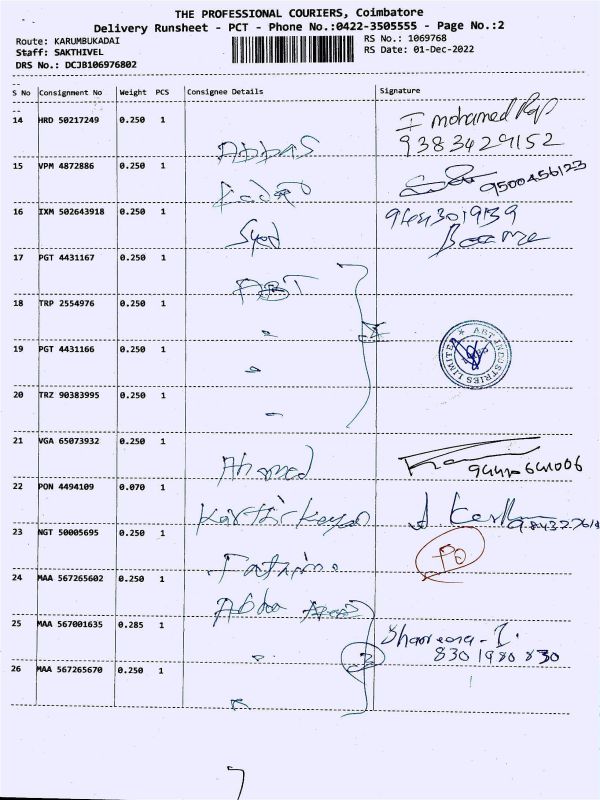 THE PROFESSIONAL COURIERS, Coimbatore
Delivery Runsheet - PCT - Phone No.:0422-3505555 - Page No.:2
Route: KARUMBUKADAI
RS No.: 1069768
Staff: SAKTHIVEL
RS Date: 01-Dec-2022
DRS No.: DCJB106976802
S No Consignment No Weight PCS Consignee Details Signature
14 HRD 50217249 0.250 1 Abbas
I mohamed
9383429152
15 VPM 4872886 0.250 1
9500456123
16 IXM 502643918 0.250 1 Syed
17 PGT 4431167 0.250 1 ABT
18 TRP 2554976 0.250 1 "
ABT INDUSTRIES LIMITED
19 PGT 4431166 0.250 1 "
20 TRZ 90383995 0.250 1 "
21 VGA 65073932 0.250 1 Ahamed
22 PON 4494109 0.070 1
23 NGT 50005695 0.250 1
24 MAA 567265602 0.250 1
25 MAA 567001635 0.285 1 "
8301980830
26 MAA 567265670 0.250 1 "